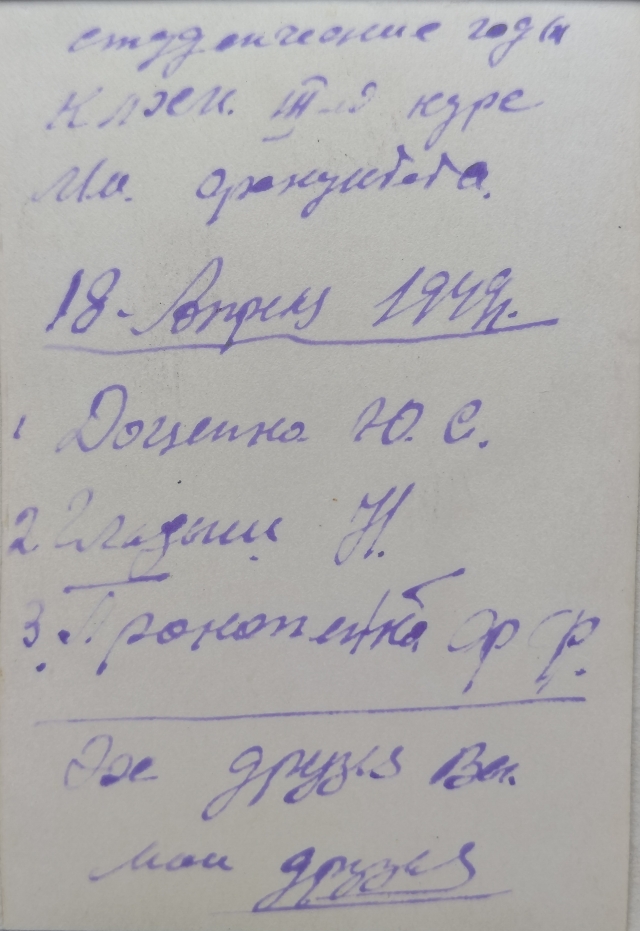 студенческие годы
III курс
факультета
18 Апреля 1949г.
1 Доценко Ю. С.
2 Гладыш Н.
3. Прокопенко Ф Ф.
Эх друзья Вы
мои друзья